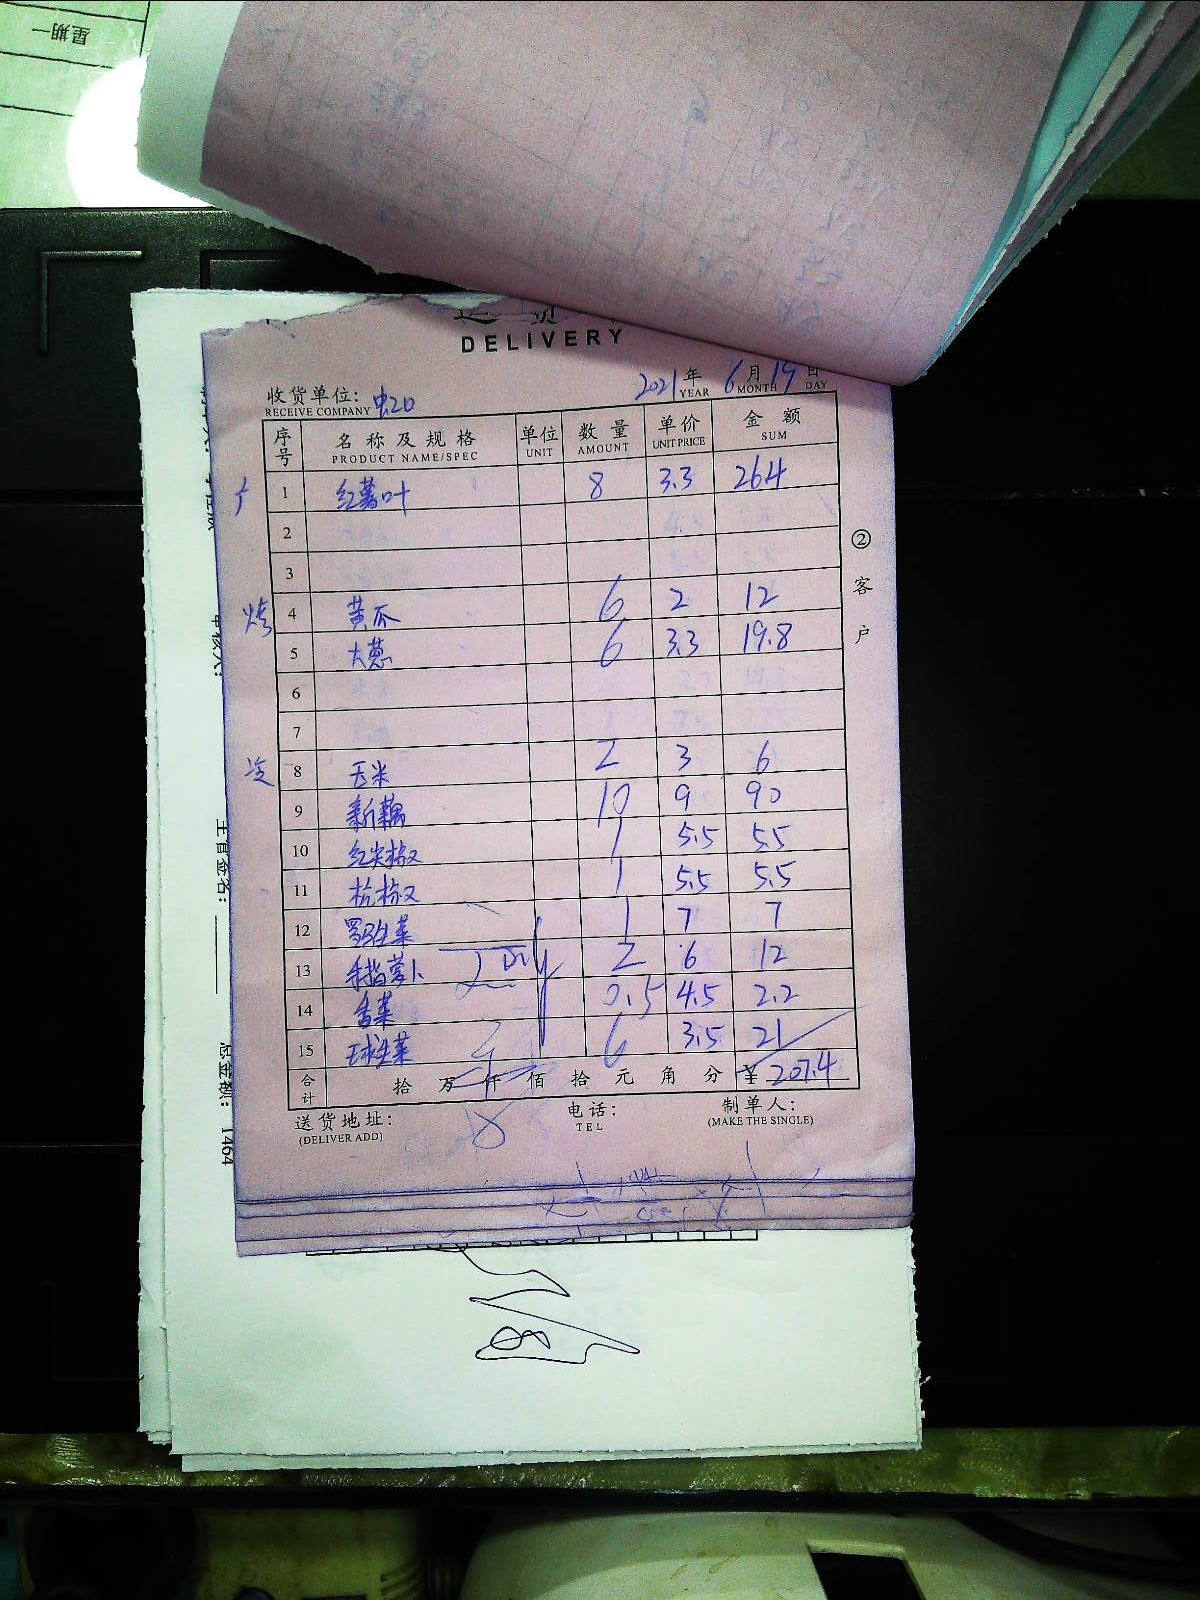 星期一
送货单
DELIVERY
收货单位: 虫20
RECEIVE COMPANY
2021年 6月 19日
YEAR MONTH DAY
序号 名称及规格 单位 数量 单价 金额
PRODUCT NAME/SPEC UNIT AMOUNT UNIT PRICE SUM
1 红薯叶 8 3.3 26.4
2
3
烤 4 黄瓜 6 2 12
5 大葱 6 3.3 19.8
6
7
冷 8 玉米 2 3 6
9 新藕 10 9 90
10 红尖椒 1 5.5 5.5
11 杭椒 1 5.5 5.5
12 罗马生菜 1 7 7
13 手指萝卜 2 6 12
14 香菜 0.5 4.5 2.2
15 球生菜 6 3.5 21
合计 拾 万 仟 佰 拾 元 角 分 ¥ 207.4
送货地址: 电话: 制单人:
(DELIVER ADD) TEL (MAKE THE SINGLE)
② 客户
主管签名:
总金额: 1464